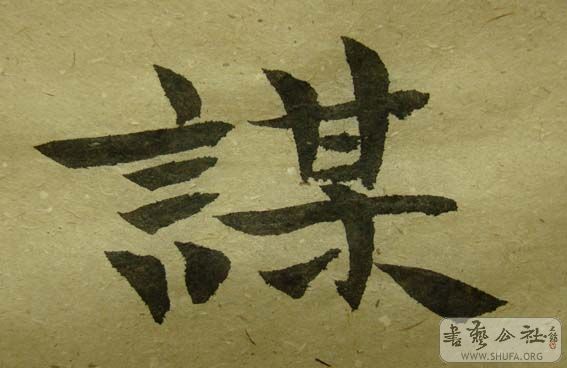 謀
書藝公社
WWW.SHUFA.ORG